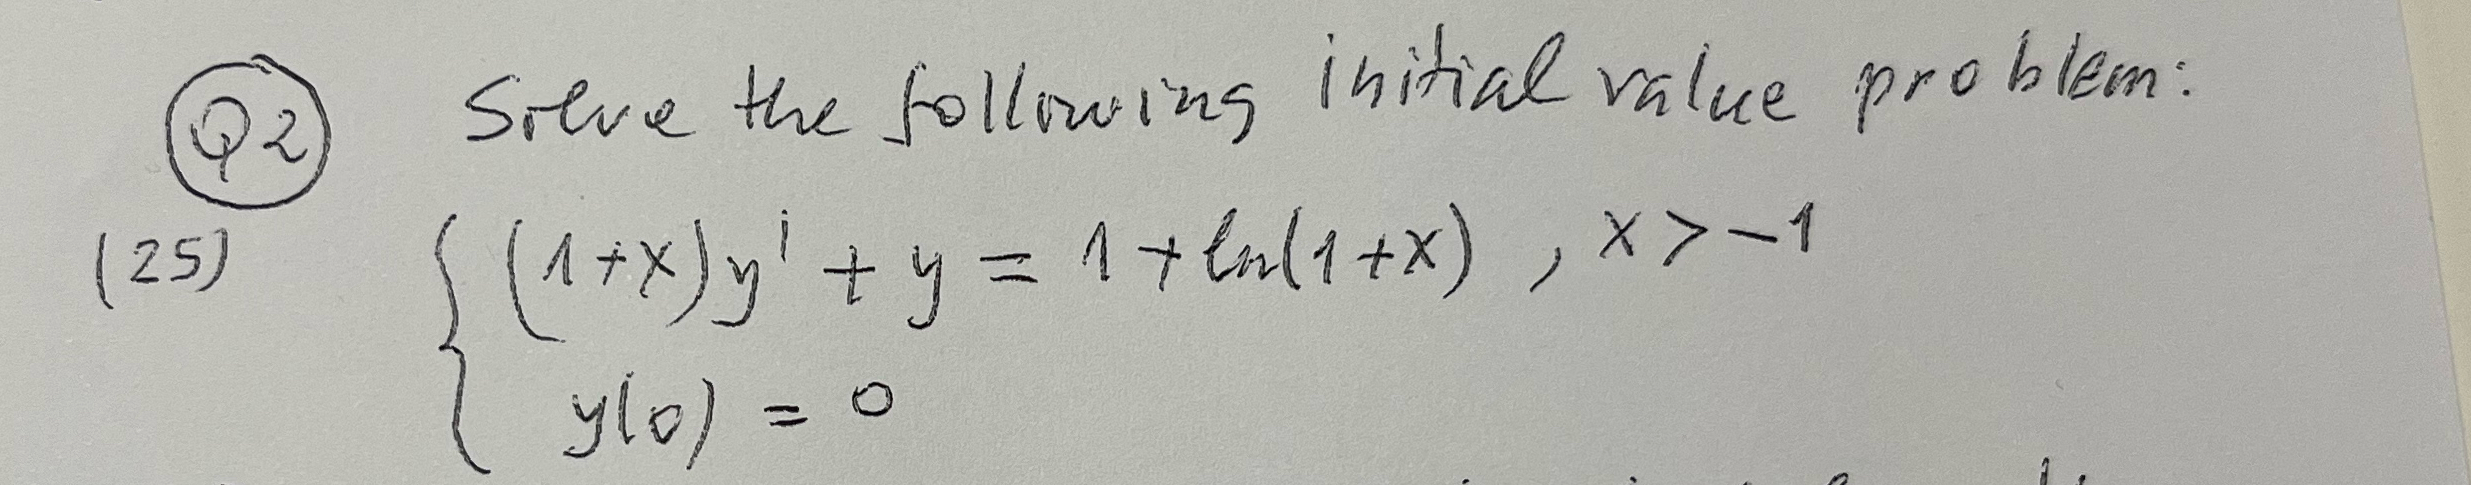 Q2 Solve the following initial value problem:
(25) { (1+x)y' + y = 1+ln(1+x) , x>-1
y(0) = 0